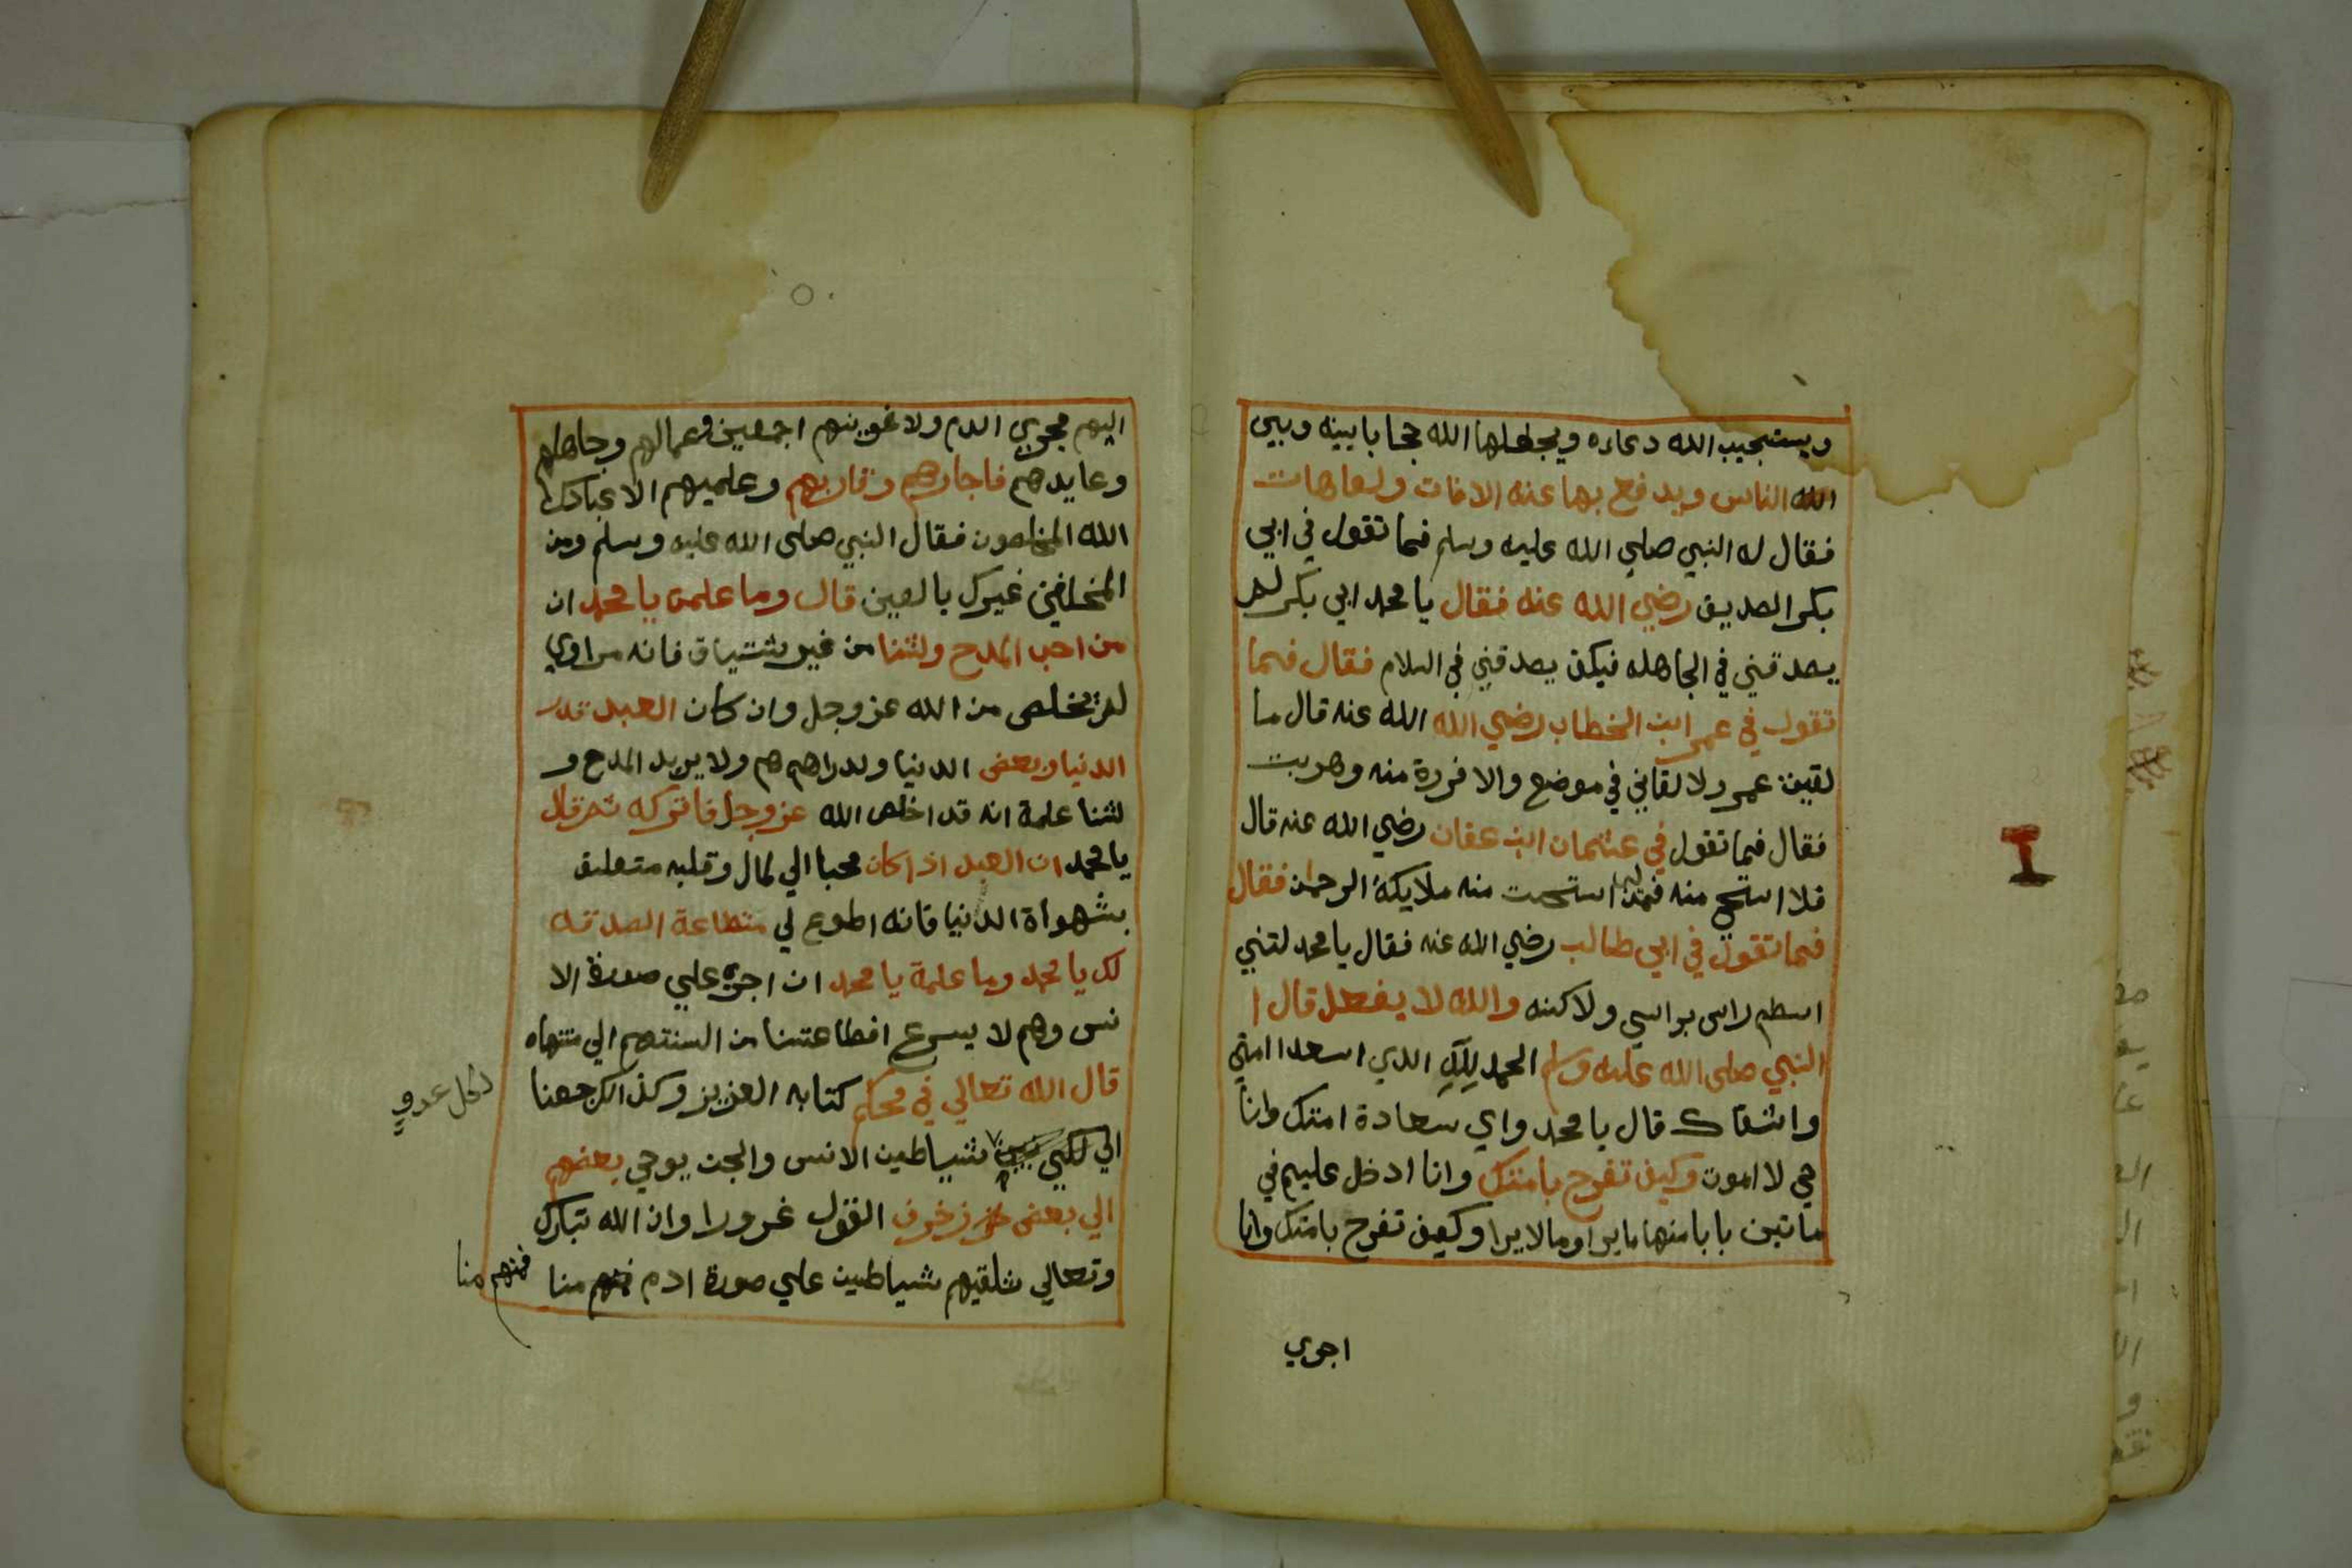 ويستجيب الله دعاءه ويجعلها الله حجابا بينه وبين
الله الناس ويدفع بها عنه الافات ولعاهات
فقال له النبي صلي الله عليه وسلم فما تقول في ابي
بكر الصديق رضي الله عنه فقال يا محمد ابي بكر لم
يصدقني في الجاهله فيكف يصدقني في السلام فقال فما
تقول في عمر ابن الخطاب رضي الله الله عنه قال ما
لقيت عمر ولا لقاني في موضع والا فررة منه وهربت
فقال فما تقول في عثمان ابن عفان رضي الله عنه قال
فلا استحي منه استحت منه ملايكة الرحمان فقال
فما تقول في ابي طالب رضي الله عنه فقال يا محمد لتني
اسطم راسي براسي ولاكنه والله لا يفعل قال ا
النبي صلى الله عليه وسلم الحمد لله الذي اسعدا امتي
واشقاك قال يا محمد واي سعادة امتك وانا
حي لا اموت وكيف تفرح بامتك وانا ادخل عليهم في
ماتين بابا منها ما يرا وما لا يرا وكيف تفرح بامتك وانا
اجري
اليهم مجري الدم ولاغوينهم اجمعين وعمالهم وجاهلهم
وعابدهم فاجارهم وقاريهم وعلميهم الا عبادك
الله المخلصون فقال النبي صلى الله عليه وسلم ومن
المخلصني غيرك يا لعين قال وما علمت يا محمد ان
من احب المدح ولثنا من غير شتياق فانه مراوي
لم يخلص من الله عز وجل وان كان العبد قدر
الدنيا وبعض الدنيا ولدراهم هم ولا يريد المدح و
لثنا علمة انه قد اخلص الله عز وجل فاتركه ثم قال
يا محمد ان العبد اذا كان محبا الي لمال وقلبه متعلق
بشهواة الدنيا فانه اطوع لي منطاعة الصدقه
لك يا محمد وما علمة يا محمد ان اجي علي صورة الا
نس وهم لا يسرع افطاعتنا من السنتهم الي منتهاه
قال الله تعالي في محكم كتابه العزيز وكذالك جعنا
لكل عدو
الي لكبي شياطين الانس والجن يوحي بعضهم
الي بعض زخرف القول غرورا وان الله تبارك
وتعالي شلقيهم شياطين علي صورة ادم فمنهم منا
فمنهم منا